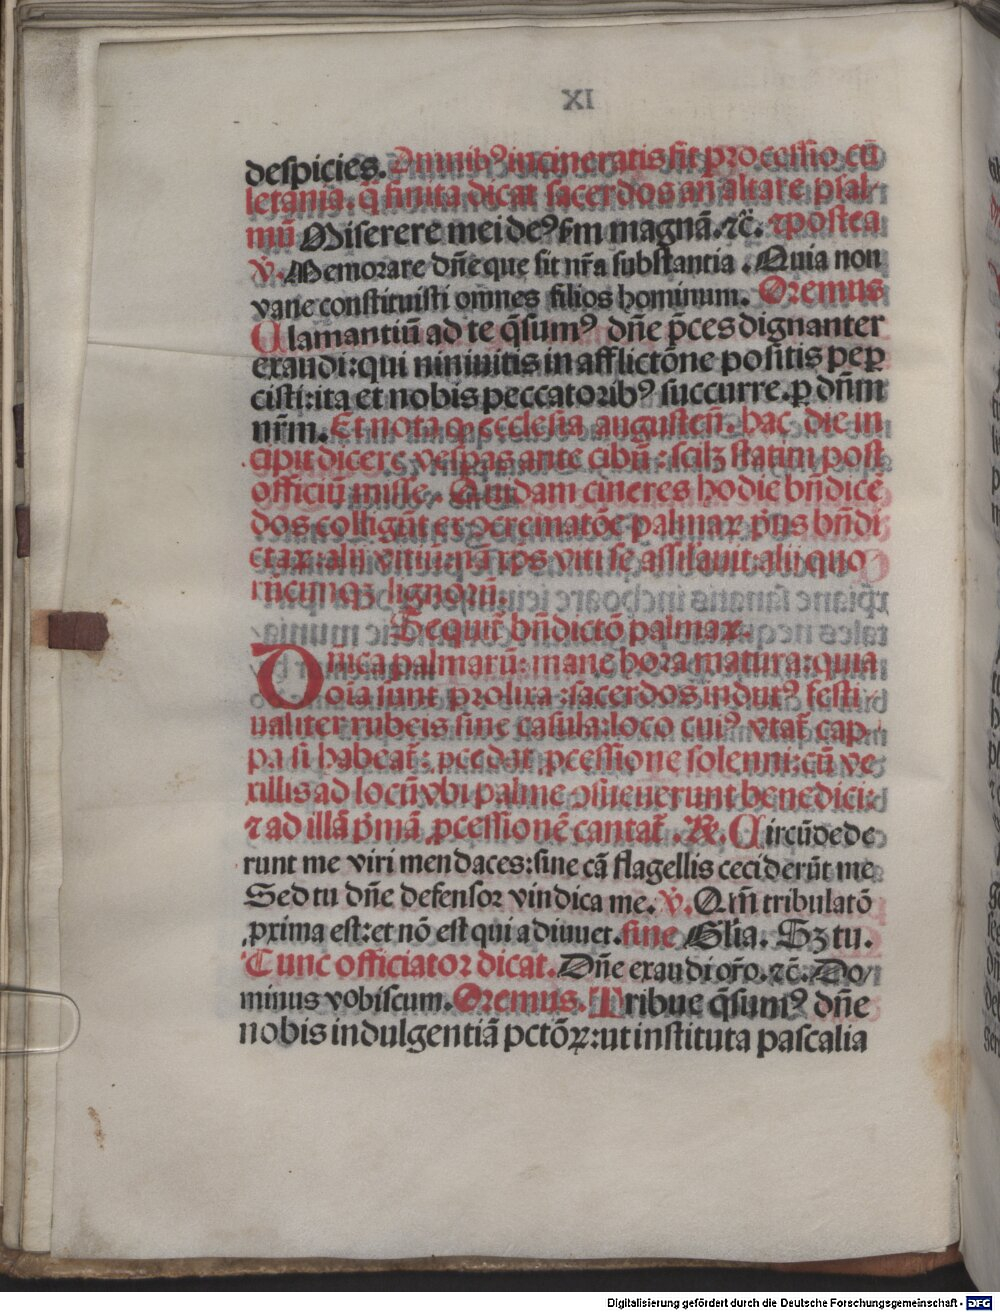 XI
despicies. Omnibꝰ incineratis fit processio cū
letania. q̄ finita dicat sacerdos añ altare psal-
mū Miserere mei deꝰ sm magnā. ⁊c̄. ⁊postea
v̇. Memorare dñe que sit nr̄a substantia. Quia non
vane constituisti omnes filios hominum. Oremus
Clamantiū ad te q̄sumꝰ dñe p̄ces dignanter
exaudi: qui niniuitis in afflictōne positis peꝑ
cisti: ita et nobis peccatoribꝰ succurre. ꝑ dñm
nr̄m. Et nota ꝙ ecclesia augusteñ. hac die in
cipit dicere vesꝑas ante cibū: scilꝫ statim post
officiū misse. Quidam cineres hodie bñdicē
dos colligūt ex ꝯcrematōe palmaꝝ p̄us bñdi
ctaꝝ: alij vitiū: nā xp̄s viti se assilauit: alij quo
rūcūqꝫ lignorū.
Sequit̄ bñdictō palmaꝝ.
Dñica palmarū: mane hora matura: quia
oīa sunt prolixa: sacerdos indutꝰ festi
ualiter rubeis sine casula: loco cuiꝰ vtat̄ cap
pa si habeat̄: ꝓcedat ꝓcessione solenni: cū ve
xillis ad locū vbi palme ꝯsueuerunt benedici:
⁊ ad illā p̄mā ꝓcessionē cantat̄. ℟. Circūdede
runt me viri mendaces: sine cā flagellis ceciderūt me
Sed tu dñe defensor vindica me. v̇. Qm̄ tribulatō
ꝓxima est: et nō est qui adiuuet. sine Glīa. Sꝫ tu.
Tunc officiator dicat. Dñe exaudi or̄o. ⁊c̄. Do/
minus vobiscum. Oremus. Tribue q̄sumꝰ dñe
nobis indulgentiā pctōꝝ: ut instituta pascalia
Digitalisierung gefördert durch die Deutsche Forschungsgemeinschaft - DFG